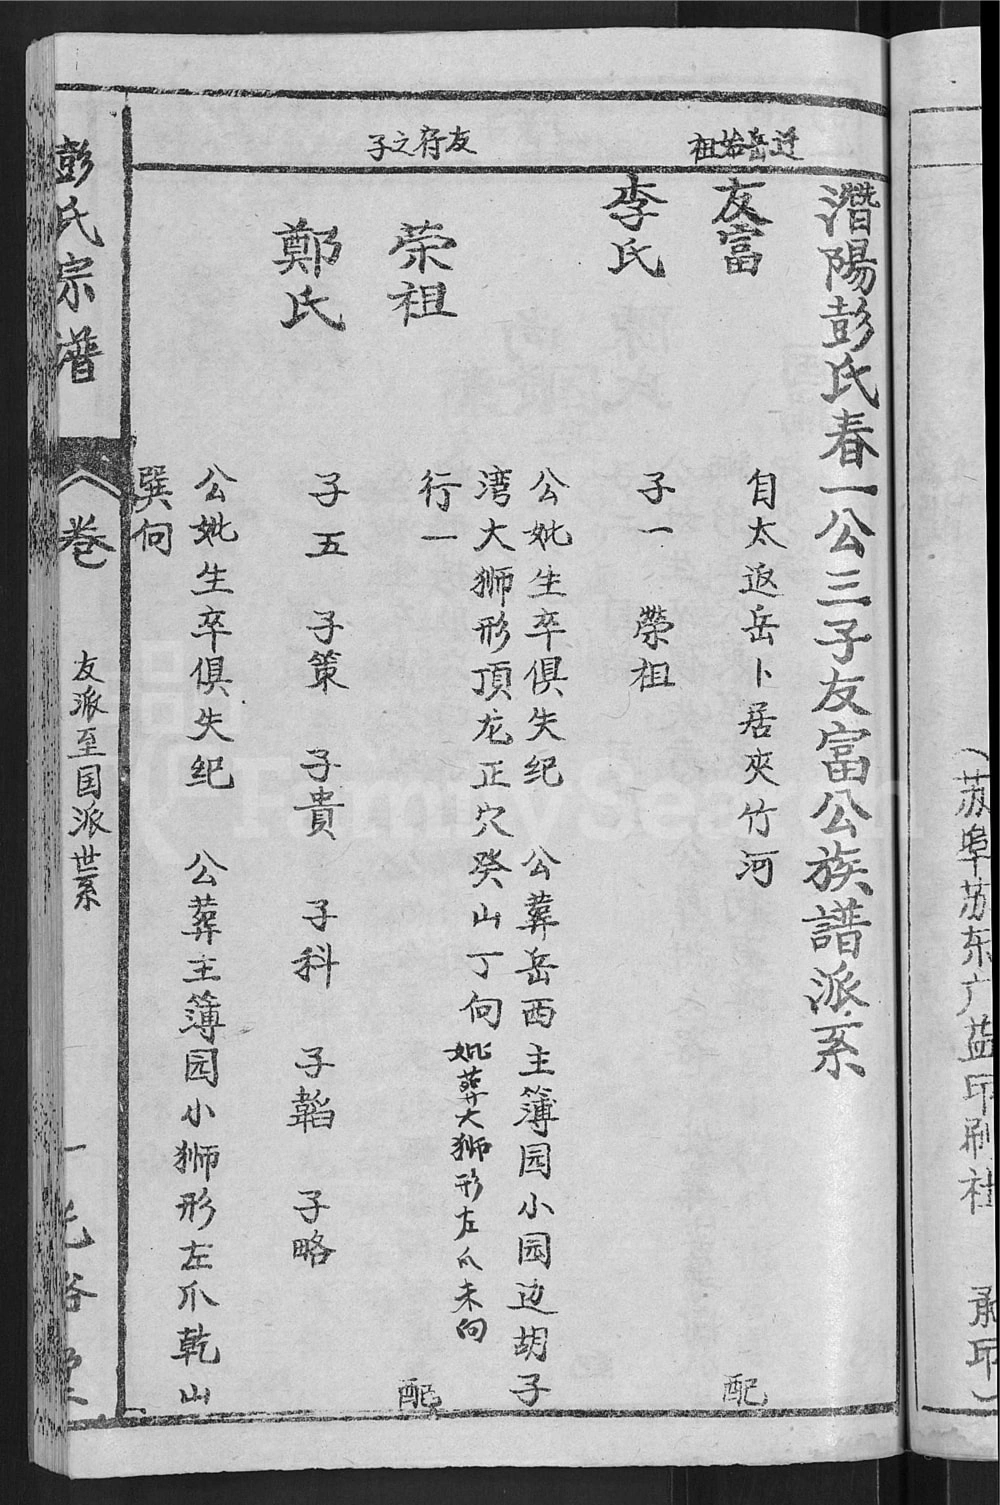 潛陽彭氏春一公三子友富公族譜派系
迁岳始祖
友富
自太返岳卜居夾竹河
配
李氏
子一 榮祖
公妣生卒俱失纪 公葬岳西主簿园小园边胡子
湾大狮形頂龙正穴癸山丁向妣葬大狮形左爪未向
友府之子
荣祖
行一
配
鄭氏
子五 子策 子貴 子科 子韜 子略
公妣生卒俱失纪 公葬主簿园小狮形左爪乾山
巽向
彭氏宗谱
卷
友派至国派世系
一
光裕堂
(苏埠苏东广益印刷社 承印)